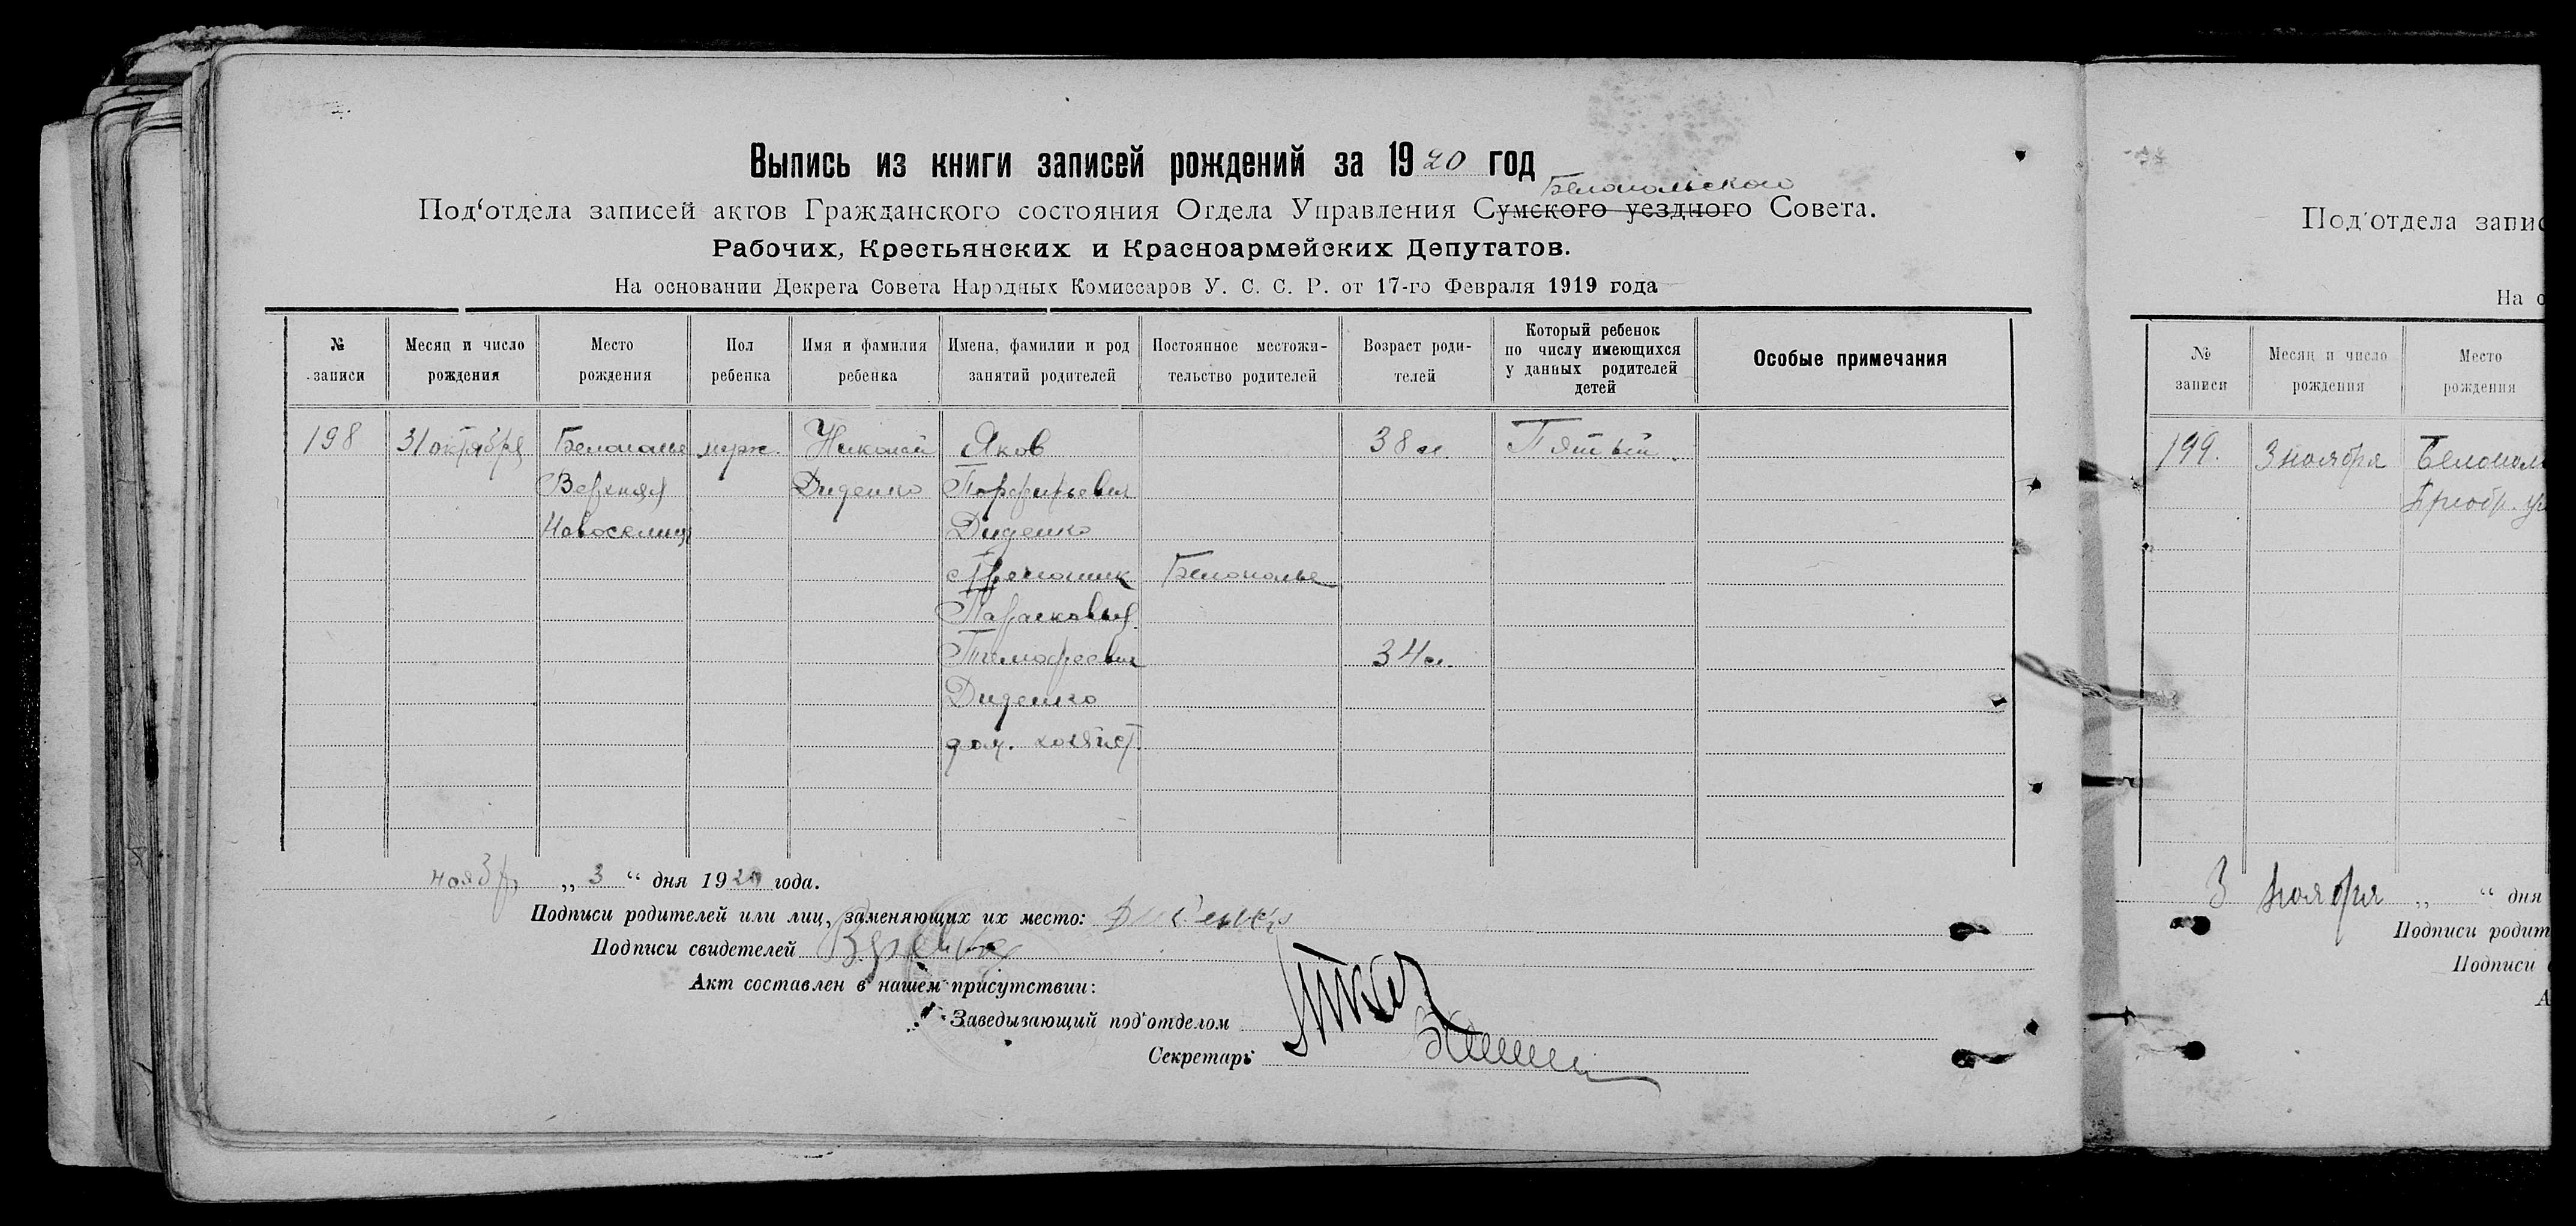 Выпись из книги записей рождений за 1920 год
Белопольского
Под‘отдела записей актов Гражданского состояния Отдела Управления Сумского уездного Совета.
Рабочих, Крестьянских и Красноармейских Депутатов.
На основании Декрета Совета Народных Комиссаров У. С. С. Р. от 17-го Февраля 1919 года
№ записи
Месяц и число рождения
Место рождения
Пол ребенка
Имя и фамилия ребенка
Имена, фамилии и род занятий родителей
Постоянное местожи-тельство родителей
Возраст роди-телей
Который ребенок по числу имеющихся у данных родителей детей
Особые примечания
198 31 октября Белополье муж. Николай Яков 38 л. Пятый.
Верхняя Диденко Порфирьевич
Новоселица Диденко
Белополье
Парасковья
Тимофеевна 34 л.
Диденко
дом. хозяйст.
ноябр „ 3 “ дня 1920 года.
Подписи родителей или лиц, заменяющих их место: Диденко
Подписи свидетелей
Акт составлен в нашем присутствии:
Заведывающий под‘отделом
Секретарь
Под‘отдела запис
На о
№ записи
Месяц и число рождения
Место рождения
199. 3 ноября Белополь
3 ноября „ “ дня
Подписи родит
Подписи
А